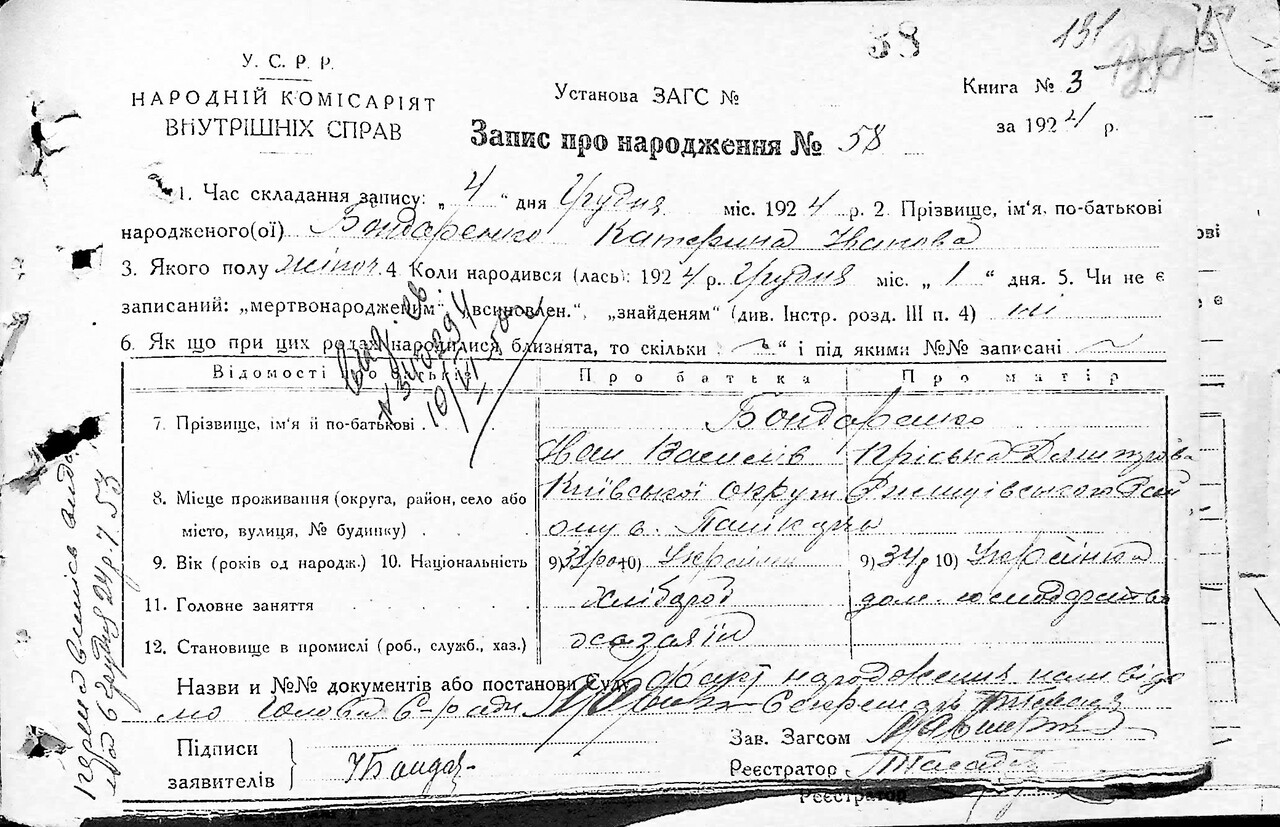 58
131
У. С. Р. Р.
НАРОДНІЙ КОМІСАРІЯТ
ВНУТРІШНІХ СПРАВ
Установа ЗАГС №
Книга № 3
за 1924 р.
Запис про народження № 58
1. Час складання запису: „ 4 “ дня Грудня міс. 1924 р. 2. Прізвище, ім'я, по-батькові
народженого(ої) Бондаренко Катерина Іванова
3. Якого полу жіноч. 4 Коли народився (лась): 1924 р. Грудня міс. „ 1 “ дня. 5. Чи не є
записаний: „мертвонародженим“ „всиновлен.“, „знайденям“ (див. Інстр. розд. III п. 4) ні
6. Як що при цих родах народилися близнята, то скільки „ “ і під якими №№ записані
Відомості про батьків Про батька Про матір
7. Прізвище, ім'я й по-батькові Бондаренко
Іван Василів Пріська Дмитрова
8. Місце проживання (округа, район, село або Київської округи Ржищівського
місто, вулиця, № будинку)
9. Вік (років од народж.) 10. Національність 9) 10) 9) 34р 10) Українка
11. Головне заняття Хлібороб дом. господарство
12. Становище в промислі (роб., служб., хаз.) хазаїн
Назви и №№ документів або постанови Суду Факт народження нам відо
мо Голова С-ради Секретарь
Підписи
заявителів
Зав. Загсом
Реєстратор
Реєстратор